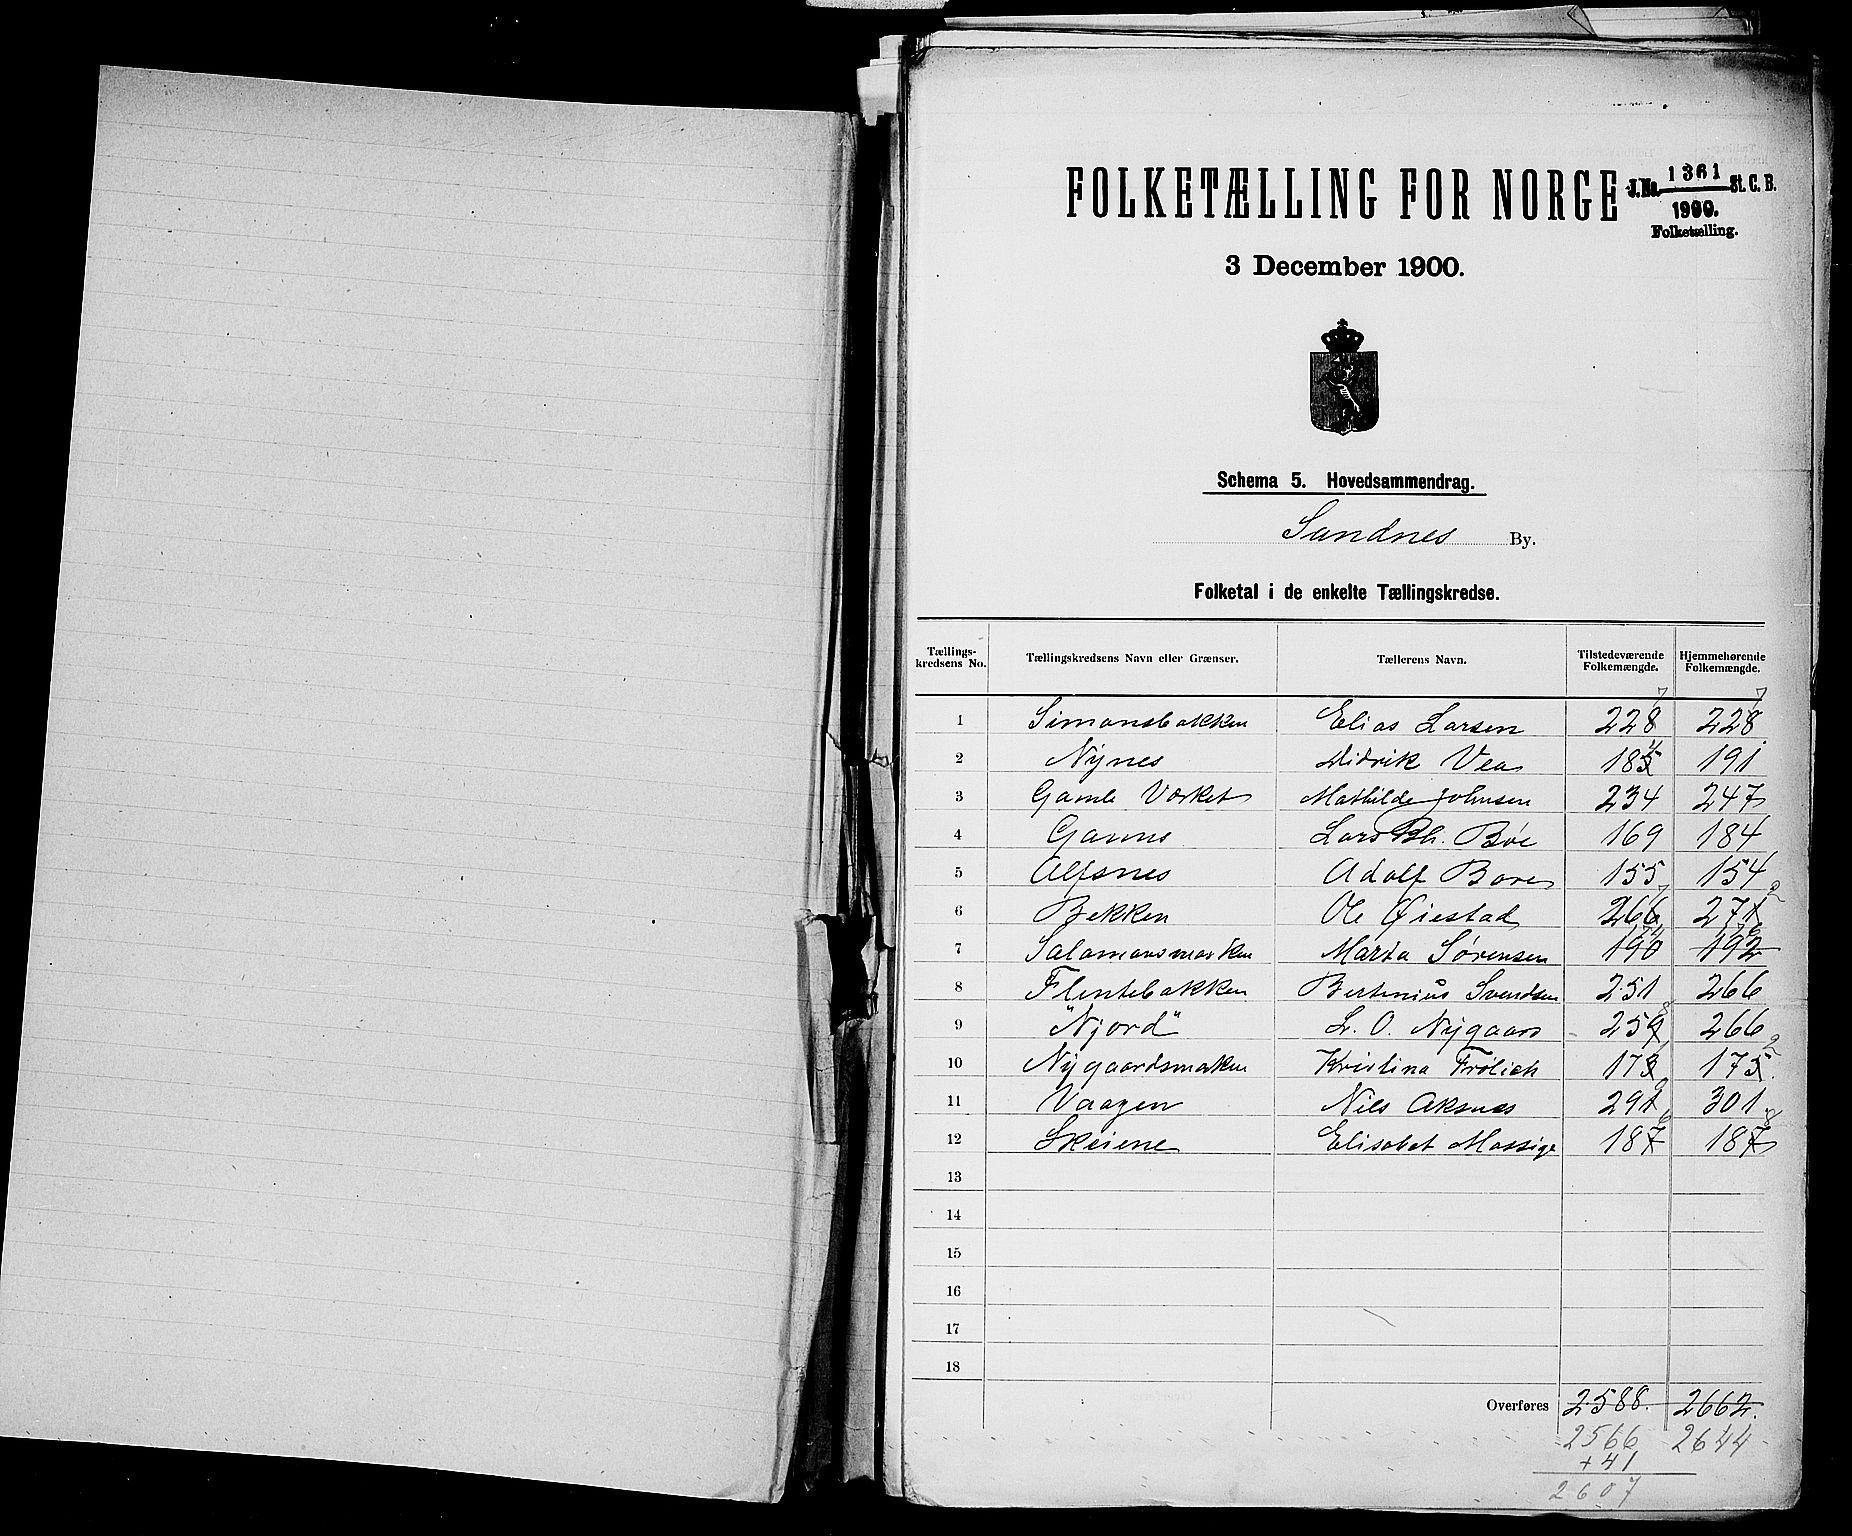 FOLKETÆLLING FOR NORGE
J.No. 1361 St. C. B.
1900.
Folketælling.
3 December 1900.
Schema 5. Hovedsammendrag.
Sandnes By.
Folketal i de enkelte Tællingskredse.
Tællings-kredsens No. Tællingskredsens Navn eller Grænser. Tællerens Navn. Tilstedeværende Folkemængde. Hjemmehørende Folkemængde.
1 Simonsbakken Elias Larsen 228 228
2 Nynes Didrik Vea 185 191
3 Gamle Værket Mathilde Johnsen 234 247
4 Ganns Lars Bh. Böe 169 184
5 Alfsnes Adolf Bore 155 154
6 Bekken Ole Øiestad 266 271
7 Salamonsmarken Marta Sørensen 190 192
8 Flintebakken Bertinius Svendsen 251 266
9 "Njord" L. O. Nygaard 259 266
10 Nygaardsmarken Kristina Frölich 173 175
11 Vaagen Nils Aksnes 291 301
12 Skeiene Elisabet Massige 187 187
13
14
15
16
17
18
Overføres 2588. 2662.
2566 2644
+41
2607